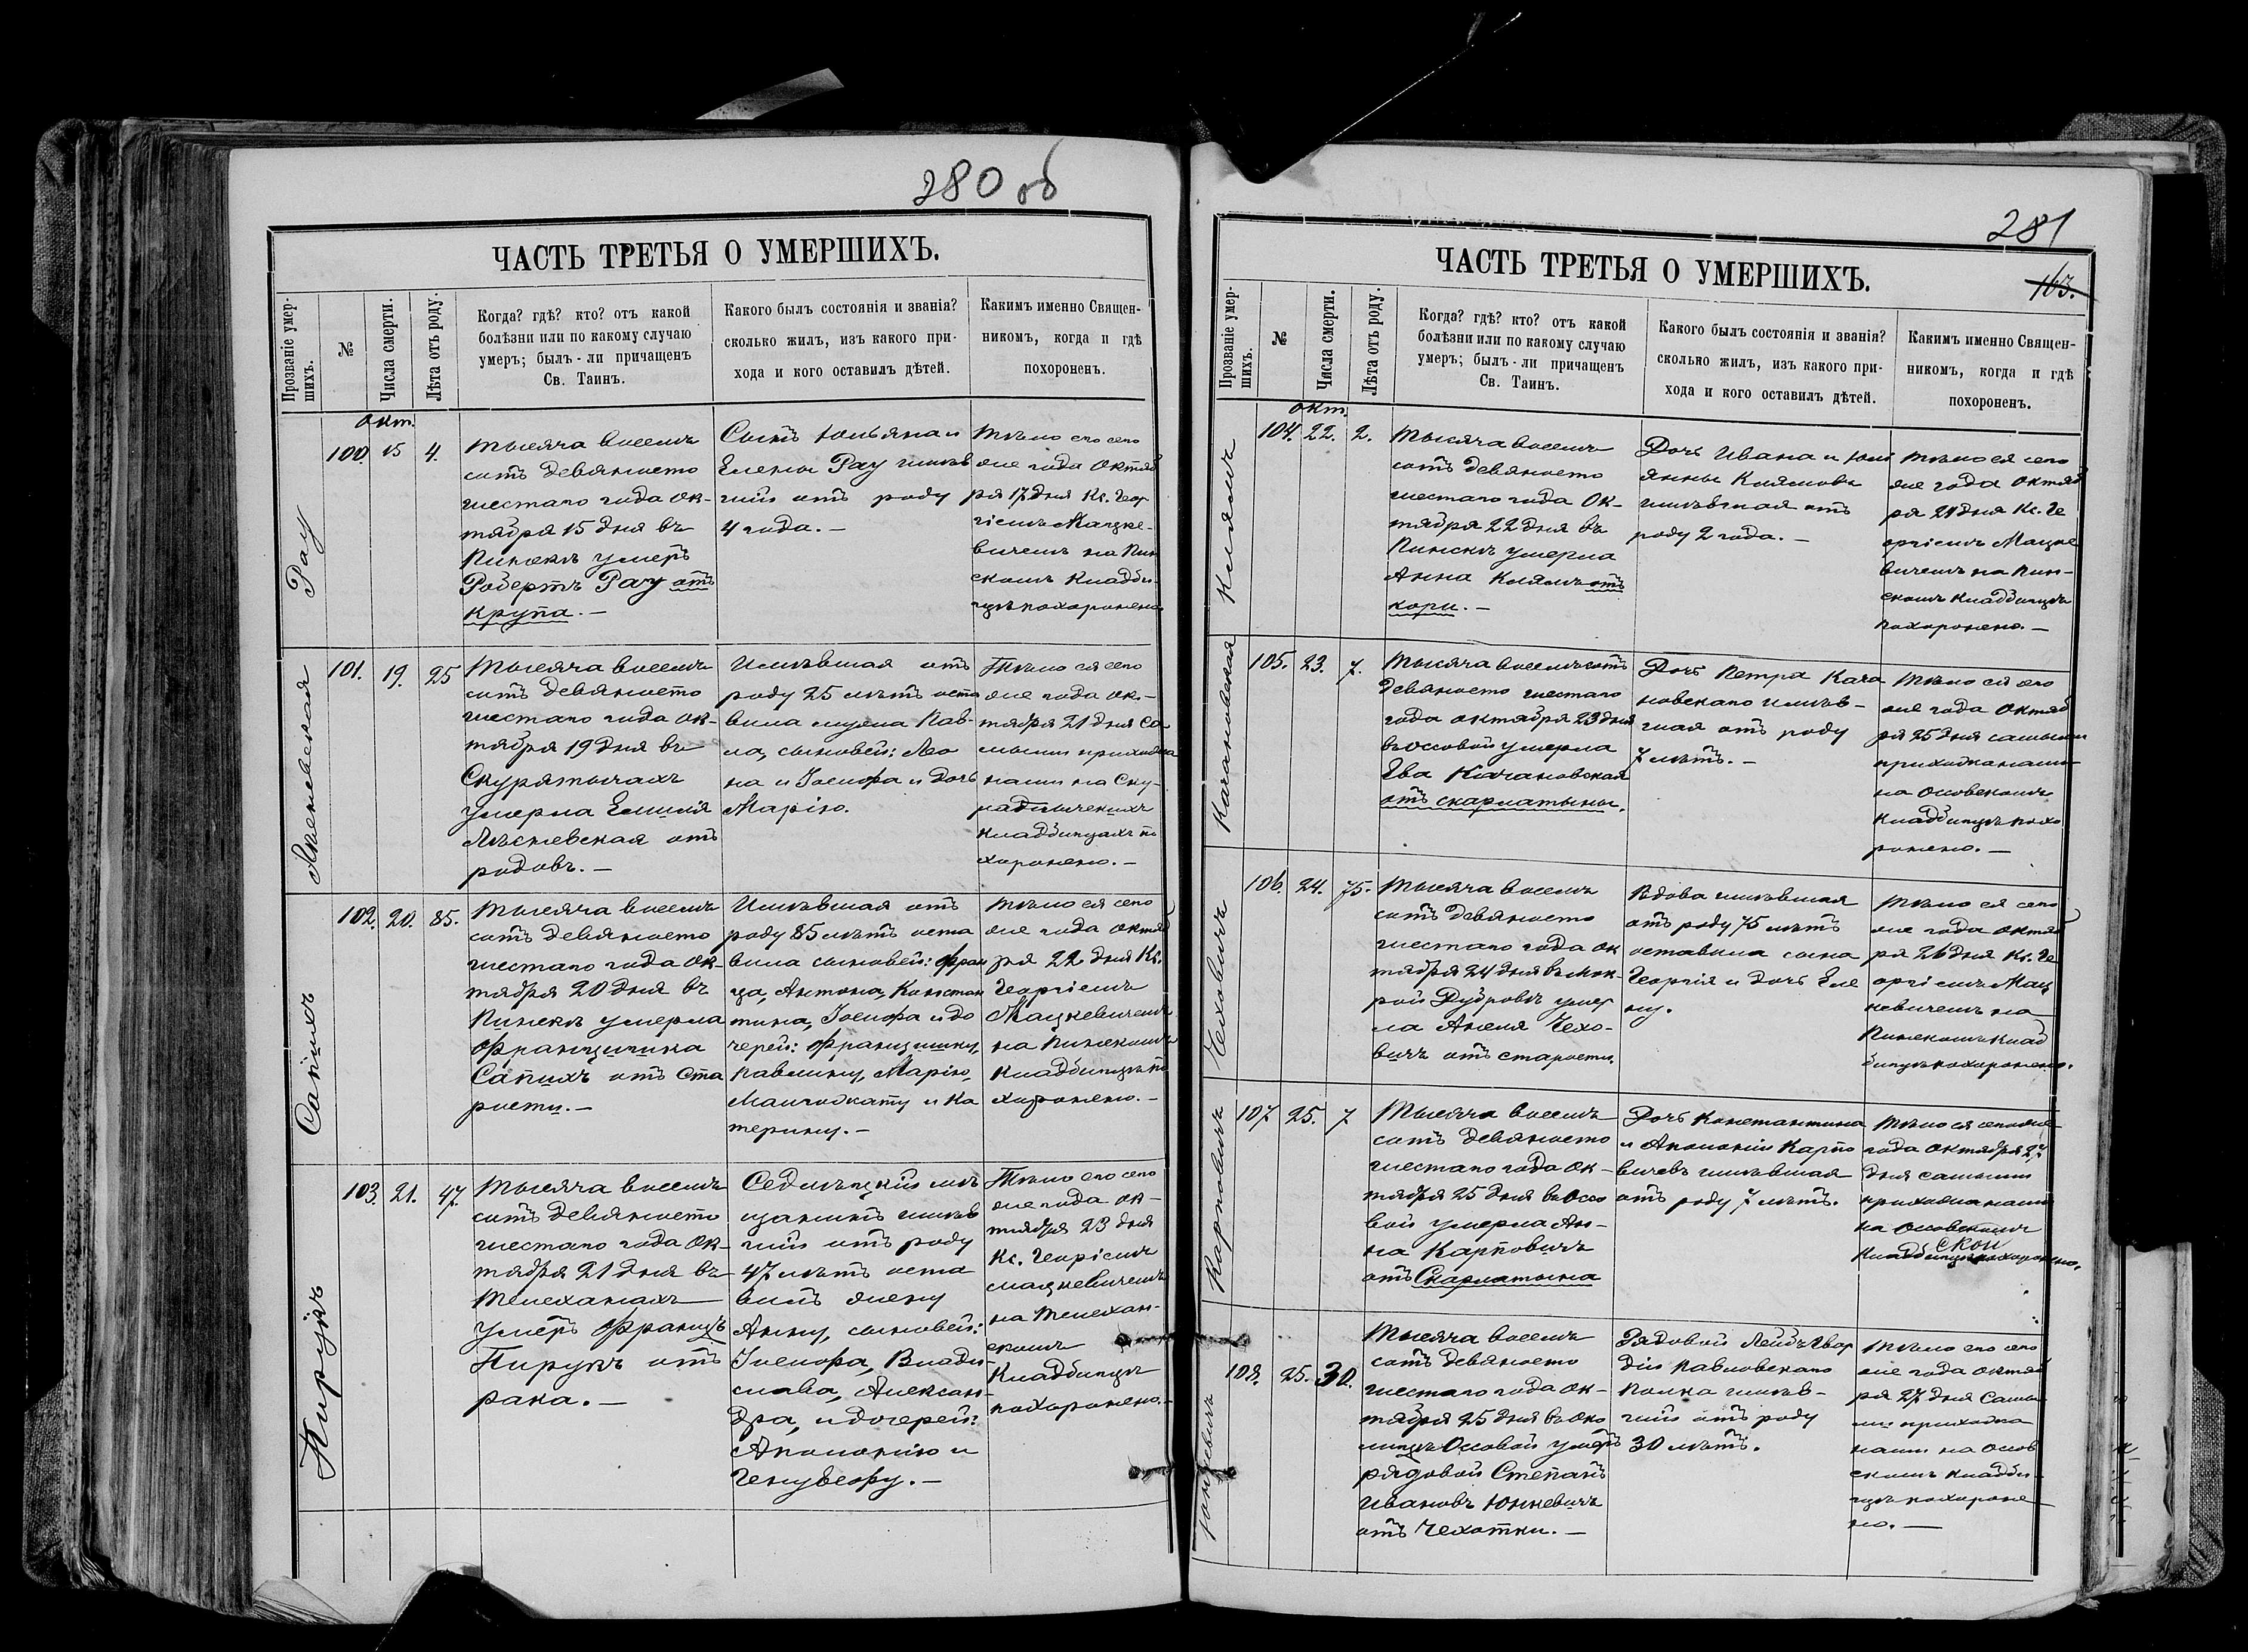 280 об
ЧАСТЬ ТРЕТЬЯ О УМЕРШИХЪ.
Прозваніе умер-
шихъ.
№
Числа смерти.
Лѣта отъ роду.
Когда? гдѣ? кто? отъ какой
болѣзни или по какому случаю
умеръ; былъ-ли причащенъ
Св. Таинъ.
Какого былъ состоянія и званія?
сколько жилъ, изъ какого при-
хода и кого оставилъ дѣтей.
Какимъ именно Священ-
никомъ, когда и гдѣ
похороненъ.
окт.
Рау
100. 15 4.
Тысяча восемь
сотъ девяносто
шестаго года ок-
тября 15 дня въ
Пинскѣ умеръ
Робертъ Рау отъ
крупа. —
Сынъ Юльяна и
Елены Рау имѣв
шій отъ роду
4 года. —
Тѣло его сего
же года октяб
ря 17 дня Кс. Геор
гіемъ Мацке-
вичемъ на Пин
скомъ кладби-
щѣ похоронено
101. 19. 25
Тысяча восемь
сотъ девяносто
шестаго года ок-
тября 19 дня въ
Скурятычахъ
умерла Емилія
отъ
родовъ. —
Имѣвшая отъ
роду 25 лѣтъ оста
вила мужа Пав-
ла, сыновей: Яо
на и Іосифа и дочь
Марію.
Тѣло ея сего
же года ок-
тября 21 дня са
мыми прихожа
нами на Ску-
кладбищахъ по
хоронено. —
Сапихъ
102. 20. 85.
Тысяча восемь
сотъ девяносто
шестаго года ок-
тября 20 дня въ
Пинскѣ умерла
Францишка
Сапихъ отъ ста
рости. —
Имѣвшая отъ
роду 85 лѣтъ оста
вила сыновей: Фран
ца, Антона, Констан
тина, Іосифа и до
черей: Францишку,
Павлину, Марію,
и Ка
терину. —
Тѣло ея сего
же года октяб
ря 22 дня Кс.
Георгіемъ
Мацкевичемъ
на Пинскомъ
кладбищѣ по
хоронено. —
103. 21. 47.
Тысяча восемь
сотъ девяносто
шестаго года ок-
тября 21 дня въ
Телеханахъ
умеръ Францъ
отъ
рака. —
Седлецкій мѣ
щанинъ имѣв
шій отъ роду
47 лѣтъ оста
вилъ жену
Анну, сыновей:
Іосифа, Влади-
слава, Алексан-
дра, и дочерей:
Аполонію и
Генувефу. —
Тѣло его сего
же года ок-
тября 23 дня
Кс. Георгіемъ
Мацкевичемъ
на Телехан-
скомъ
кладбищѣ
похоронено. —
281
163.
ЧАСТЬ ТРЕТЬЯ О УМЕРШИХЪ.
Прозваніе умер-
шихъ.
№
Числа смерти.
Лѣта отъ роду.
Когда? гдѣ? кто? отъ какой
болѣзни или по какому случаю
умеръ; былъ-ли причащенъ
Св. Таинъ.
Какого былъ состоянія и званія?
сколько жилъ, изъ какого при-
хода и кого оставилъ дѣтей.
Какимъ именно Священ-
никомъ, когда и гдѣ
похороненъ.
окт.
Клямъ
104. 22. 2.
Тысяча восемь
сотъ девяносто
шестаго года ок-
тября 22 дня въ
Пинскѣ умерла
Анна Клямъ отъ
кори. —
Дочь Ивана и Юлі
янны Клямовъ
имѣвшая отъ
роду 2 года. —
Тѣло ея сего
же года октяб
ря 21 дня Кс. Ге
оргіемъ Мацке
вичемъ на Пин-
скомъ кладбищѣ
похоронено. —
Качановская
105. 23. 7.
Тысяча восемьсотъ
девяносто шестаго
года октября 23 дня
въ Оссовой умерла
Ева Качановская
отъ скарлатыны.
Дочь Петра Кача
новскаго имѣв-
шая отъ роду
7 лѣтъ. —
Тѣло ея его
же года октяб
ря 25 дня самыми
прихожанами
на Оссовскомъ
кладбищѣ похо
ронено. —
Чеховичъ
106. 24. 75.
Тысяча восемь
сотъ девяносто
шестаго года ок
тября 24 дня въ Мок-
рой Дубровѣ умер
ла Анеля Чехо-
вичъ отъ старости.
Вдова имѣвшая
отъ роду 75 лѣтъ
оставила сына
Георгія и дочь Еле
ну.
Тѣло ея сего
же года октяб
ря 26 дня Кс. Ге
оргіемъ Мац
кевичемъ на
Пинскомъ клад
бищѣ похоронено.
Карповичъ
107 25. 7
Тысяча восемь
сотъ девяносто
шестаго года ок-
тября 25 дня въ Оссо
вой умерла Ан-
на Карповичъ
отъ Скарлатына
Дочь Константина
и Аполоніи Карпо
вичевъ имѣвшая
отъ роду 7 лѣтъ.
Тѣло ея сего же
года октября 27
дня самыми
прихожанами
на Оссовскомъ
скои
кладбищѣ похоронено.
Юхневичъ
108. 25. 30.
Тысяча восемь
сотъ девяносто
шестаго года ок-
тября 25 дня въ око
лицѣ Оссовой умеръ
рядовой Степанъ
Ивановъ Юхневичъ
отъ Чехотки. —
Рядовой Лейбъ Гвар
діи Павловскаго
полка имѣв-
шій отъ роду
30 лѣтъ.
Тѣло его сего
же года октяб
ря 27 дня самы
ми прихожа
нами на Оссов
скомъ кладби-
щѣ похороне
но. —